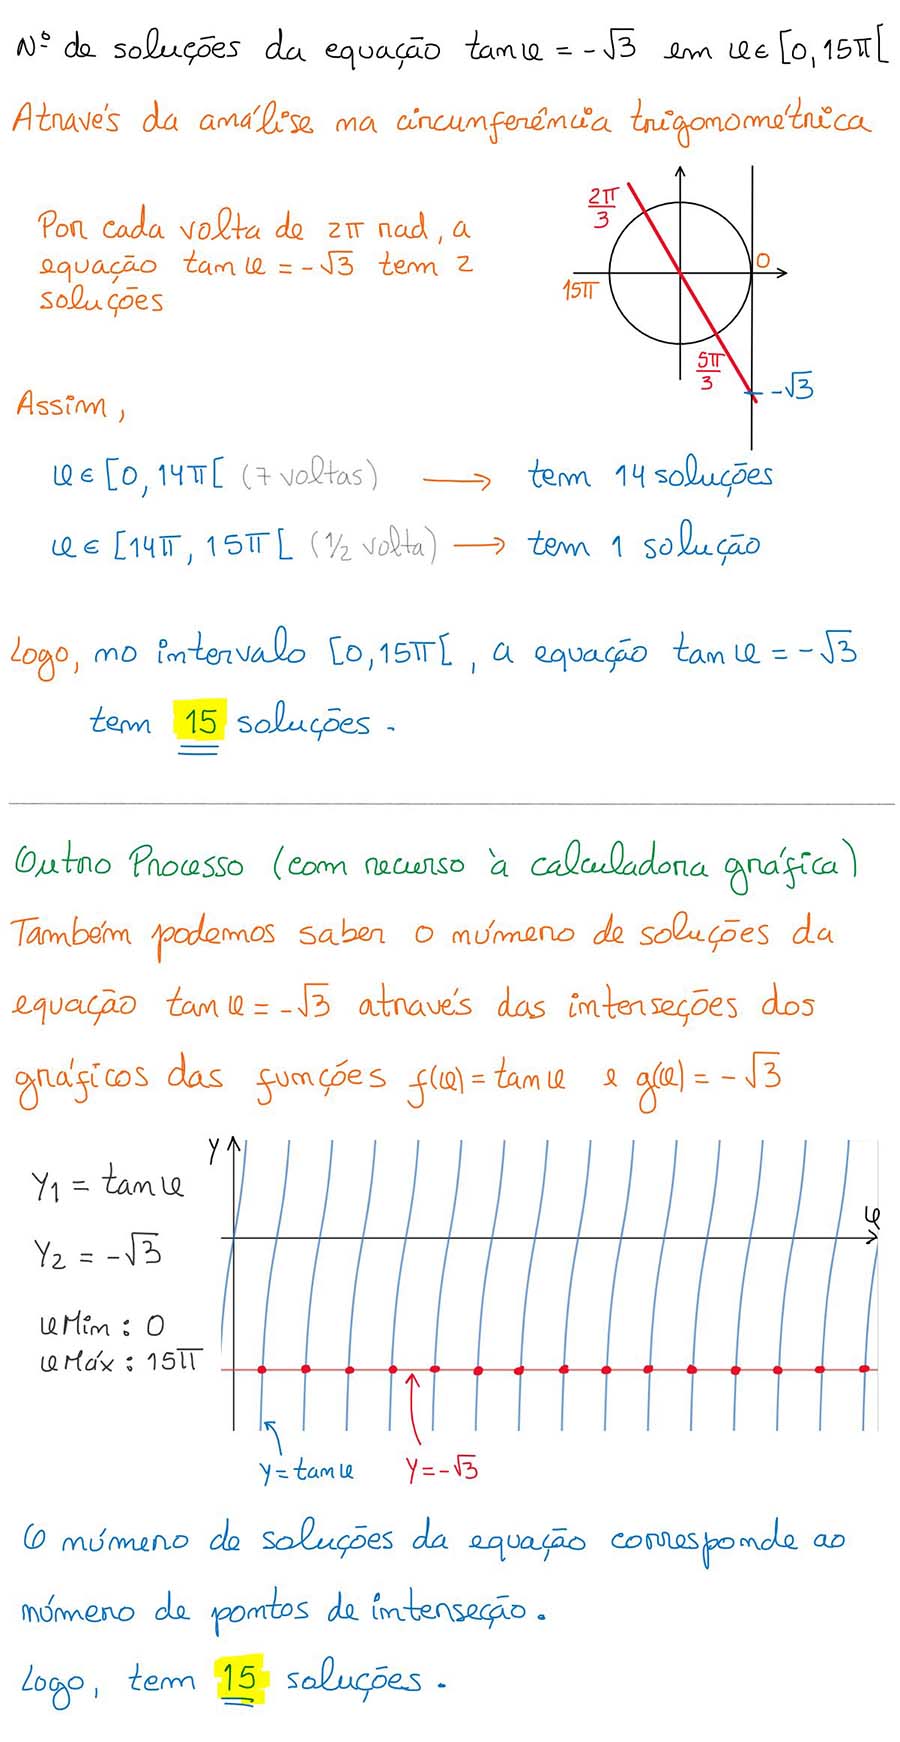 Nº de soluções da equação tan x = -√3 em x ∈ [0, 15π[
Através da análise na circunferência trigonométrica
Por cada volta de 2π rad, a
equação tan x = -√3 tem 2
soluções
2π/3
0
15π
5π/3
-√3
Assim,
x ∈ [0, 14π[ (7 voltas) → tem 14 soluções
x ∈ [14π, 15π[ (1/2 volta) → tem 1 solução
Logo, no intervalo [0, 15π[, a equação tan x = -√3
tem 15 soluções.
Outro Processo (com recurso à calculadora gráfica)
Também podemos saber o número de soluções da
equação tan x = -√3 através das interseções dos
gráficos das funções f(x) = tan x e g(x) = -√3
Y
Y1 = tan x
x
Y2 = -√3
x Min : 0
x Máx : 15π
Y = tan x
Y = -√3
O número de soluções da equação corresponde ao
número de pontos de interseção.
Logo, tem 15 soluções.